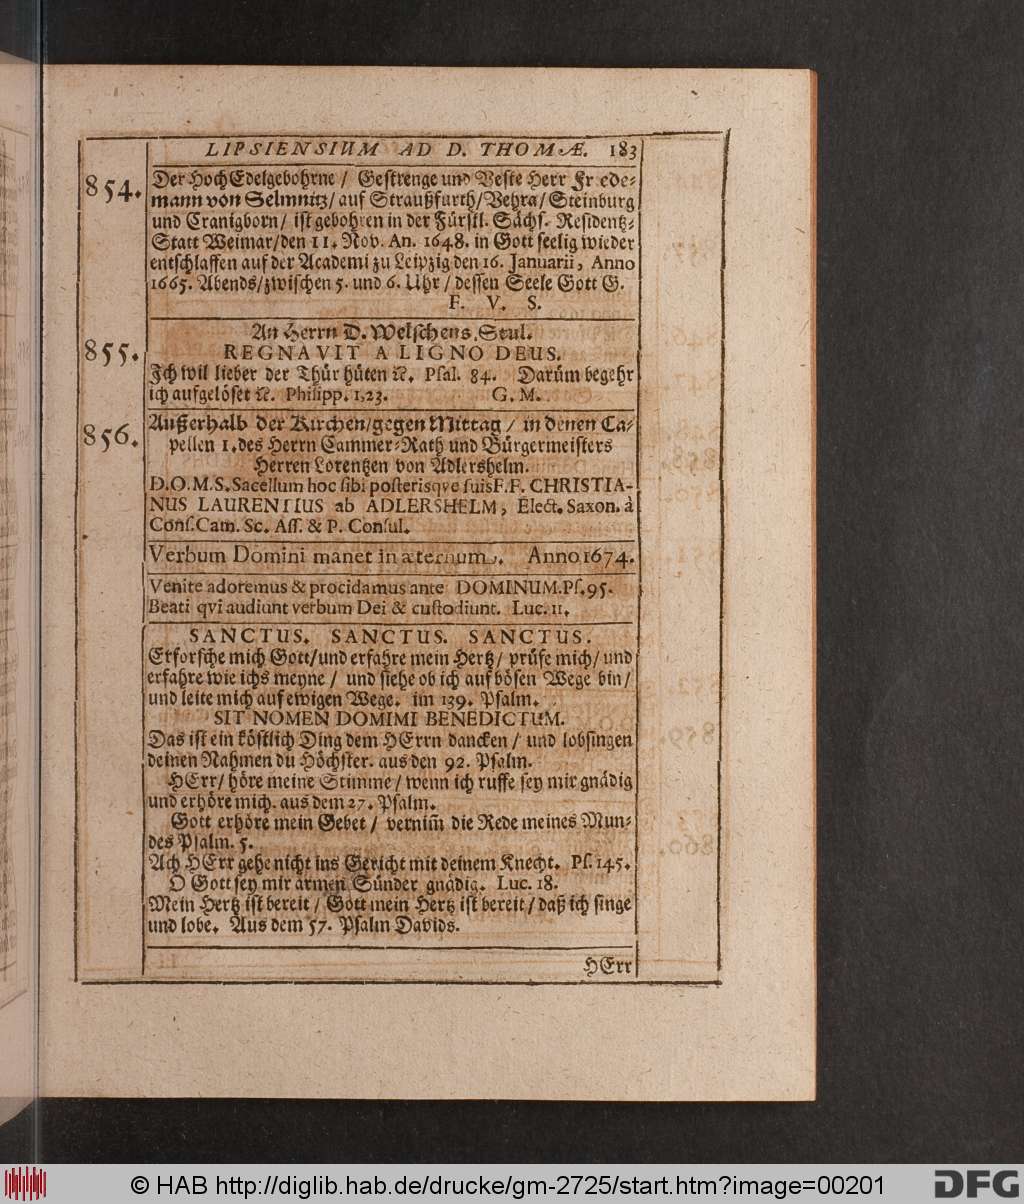 LIPSIENSIUM AD D. THOMÆ. 183
854. Der HochEdelgebohrne / Gestrenge und Veste Herr Friede-
mann von Selmnitz / auf Straußfurth / Vehra / Steinburg
und Cranigborn / ist gebohren in der Fürstl. Sächs. Residentz-
Statt Weimar / den 11. Nov. An. 1648. in Gott seelig wieder
entschlaffen auf der Academi zu Leipzig den 16. Januarii, Anno
1665. Abends / zwischen 5. und 6. Uhr / dessen Seele Gott G.
F. V. S.
An Herrn D. Welschens Stul.
855. REGNAVIT A LIGNO DEUS.
Jch wil lieber der Thür hüten ꝛc. Psal. 84. Darüm begehr
ich aufgelöset ꝛc. Philipp. 1,23. G. M.
856. Außerhalb der Kirchen / gegen Mittag / in denen Ca-
pellen 1. des Herrn Cammer-Rath und Bürgermeisters
Herren Lorentzen von Adlershelm.
D.O.M.S. Sacellum hoc sibi posterisqve suis F.F. CHRISTIA-
NUS LAURENTIUS ab ADLERSHELM, Elect. Saxon. à
Cons. Cam. Sc. Ass. & P. Consul.
Verbum Domini manet in æternum. Anno 1674.
Venite adoremus & procidamus ante DOMINUM. Ps. 95.
Beati qvi audiunt verbum Dei & custodiunt. Luc. 11.
SANCTUS. SANCTUS. SANCTUS.
Erforsche mich Gott / und erfahre mein Hertz / prüfe mich / und
erfahre wie ichs meyne / und siehe ob ich auf bösen Wege bin /
und leite mich auf ewigen Wege. im 139. Psalm.
SIT NOMEN DOMIMI BENEDICTUM.
Das ist ein köstlich Ding dem HErrn dancken / und lobsingen
deinen Nahmen du Höchster. aus den 92. Psalm.
HErr / höre meine Stimme / wenn ich ruffe sey mir gnädig
und erhöre mich. aus dem 27. Psalm.
Gott erhöre mein Gebet / vernim̃ die Rede meines Mun-
des Psalm. 5.
Ach HErr gehe nicht ins Gericht mit deinem Knecht. Ps. 145.
O Gott sey mir armen Sünder gnädig. Luc. 18.
Mein Hertz ist bereit / Gott mein Hertz ist bereit / daß ich singe
und lobe. Aus dem 57. Psalm Davids.
HErr
© HAB http://diglib.hab.de/drucke/gm-2725/start.htm?image=00201
DFG